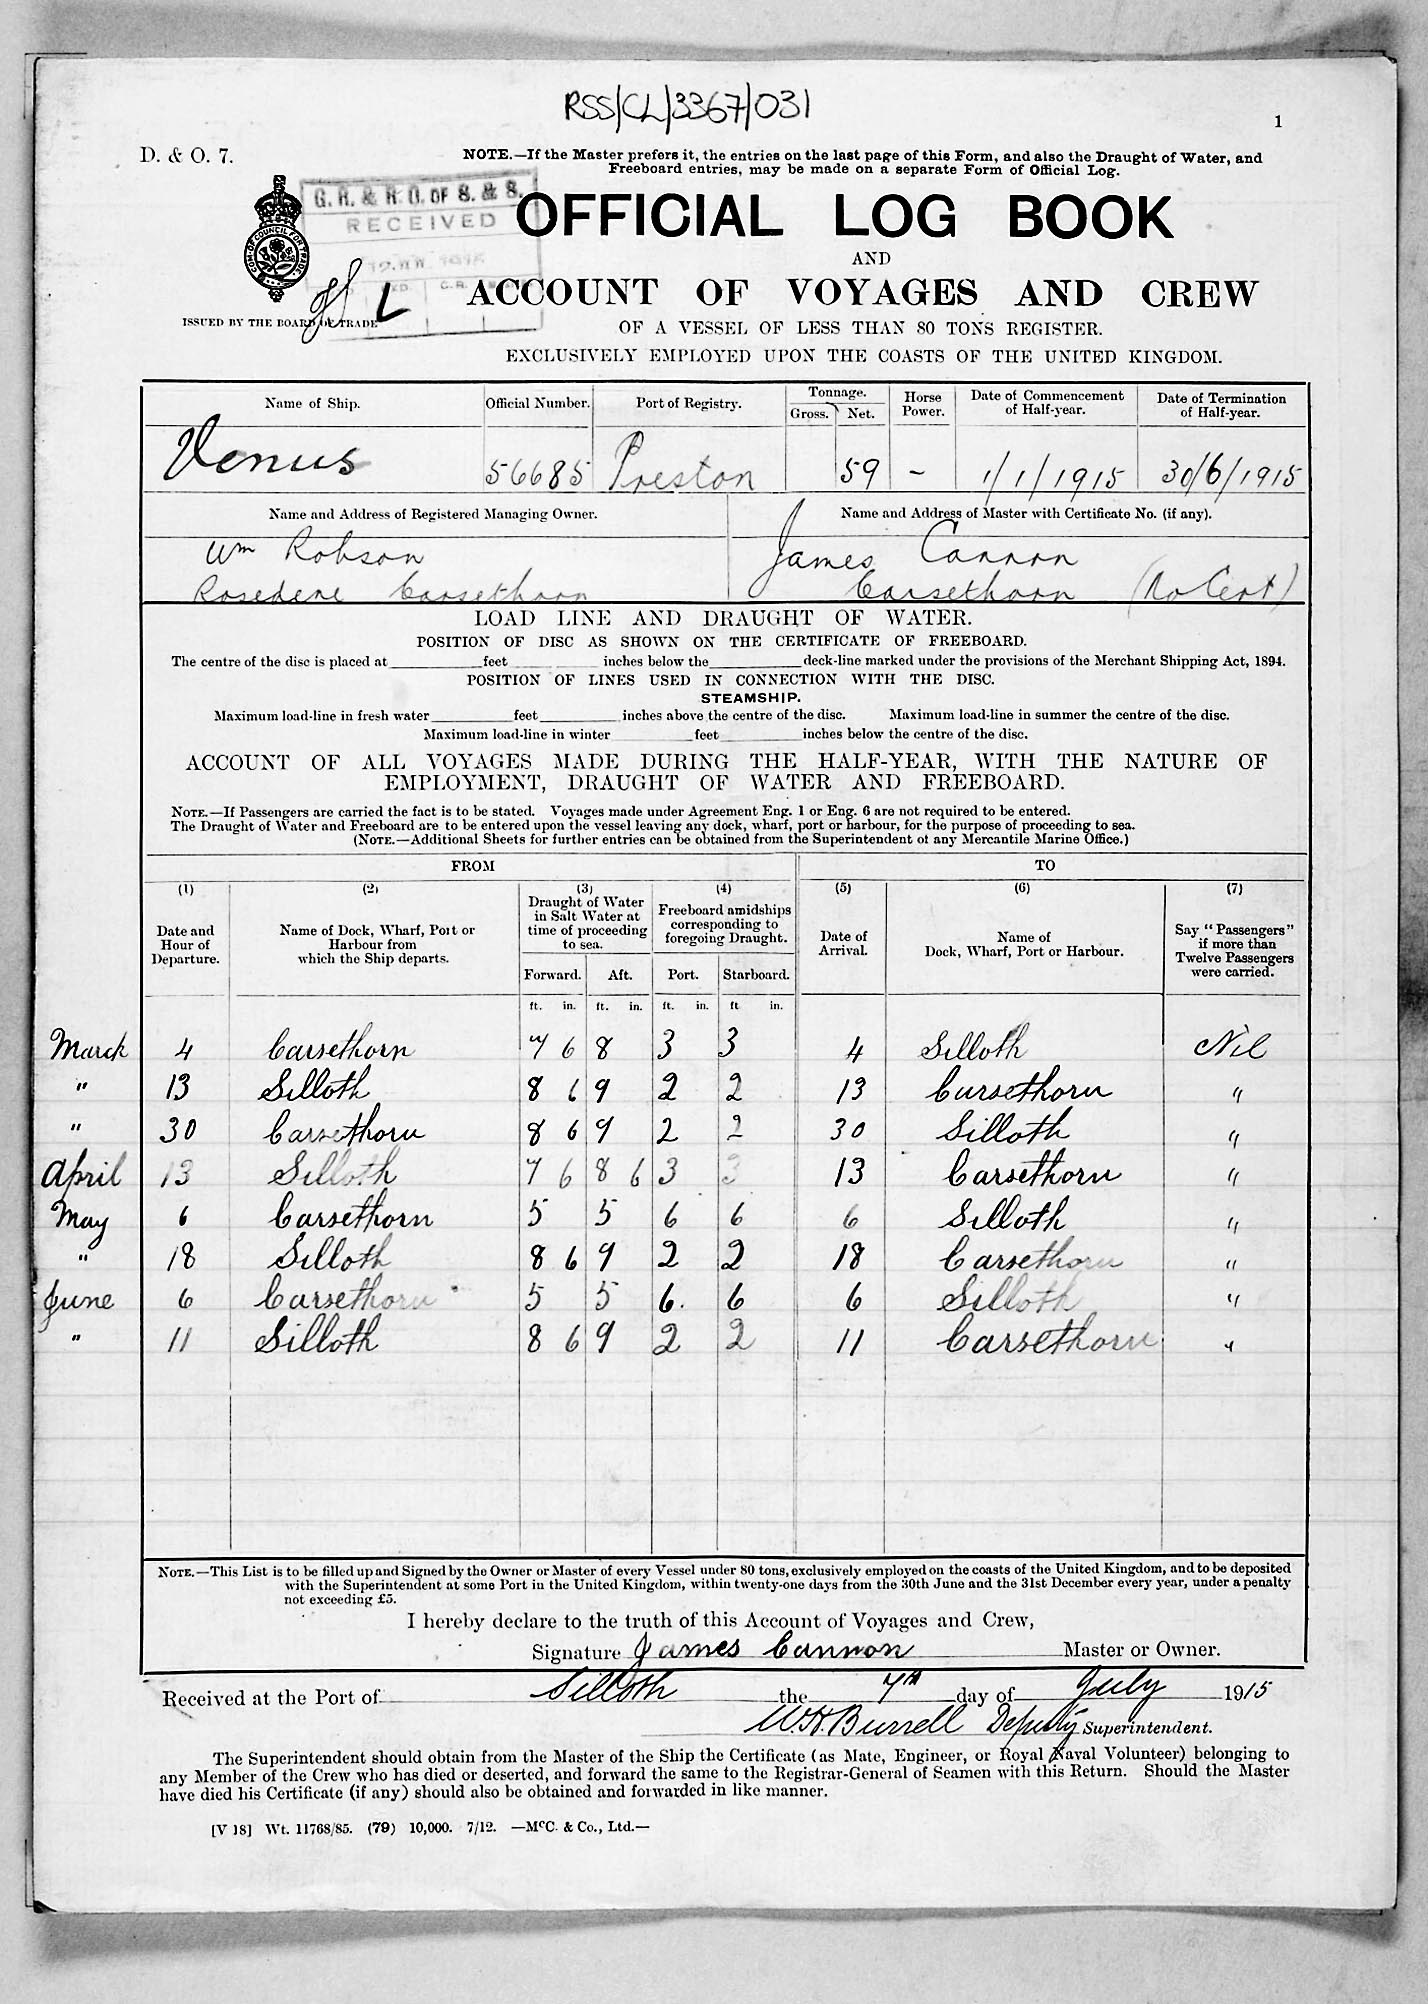 RSS/CL/3367/031
1
D. & O. 7.
NOTE.—If the Master prefers it, the entries on the last page of this Form, and also the Draught of Water, and
Freeboard entries, may be made on a separate Form of Official Log.
G. R. & R. O. OF S. & S.
RECEIVED
COM: OF COUNCIL FOR TRADE
L
ISSUED BY THE BOARD OF TRADE
OFFICIAL LOG BOOK
AND
ACCOUNT OF VOYAGES AND CREW
OF A VESSEL OF LESS THAN 80 TONS REGISTER.
EXCLUSIVELY EMPLOYED UPON THE COASTS OF THE UNITED KINGDOM.
Name of Ship. Official Number. Port of Registry. Tonnage. Gross. Net. Horse Power. Date of Commencement of Half-year. Date of Termination of Half-year.
Venus 56685 Preston 59 - 1/1/1915 30/6/1915
Name and Address of Registered Managing Owner. Name and Address of Master with Certificate No. (if any).
Wm Robson James Cannon
Rosedene Carsethorn Carsethorn (No Cert)
LOAD LINE AND DRAUGHT OF WATER.
POSITION OF DISC AS SHOWN ON THE CERTIFICATE OF FREEBOARD.
The centre of the disc is placed at feet inches below the deck-line marked under the provisions of the Merchant Shipping Act, 1894.
POSITION OF LINES USED IN CONNECTION WITH THE DISC.
STEAMSHIP.
Maximum load-line in fresh water feet inches above the centre of the disc. Maximum load-line in summer the centre of the disc.
Maximum load-line in winter feet inches below the centre of the disc.
ACCOUNT OF ALL VOYAGES MADE DURING THE HALF-YEAR, WITH THE NATURE OF
EMPLOYMENT, DRAUGHT OF WATER AND FREEBOARD.
NOTE.—If Passengers are carried the fact is to be stated. Voyages made under Agreement Eng. 1 or Eng. 6 are not required to be entered.
The Draught of Water and Freeboard are to be entered upon the vessel leaving any dock, wharf, port or harbour, for the purpose of proceeding to sea.
(NOTE.—Additional Sheets for further entries can be obtained from the Superintendent of any Mercantile Marine Office.)
FROM TO
(1) (2) (3) (4) (5) (6) (7)
Date and Hour of Departure. Name of Dock, Wharf, Port or Harbour from which the Ship departs. Draught of Water in Salt Water at time of proceeding to sea. Freeboard amidships corresponding to foregoing Draught. Date of Arrival. Name of Dock, Wharf, Port or Harbour. Say "Passengers" if more than Twelve Passengers were carried.
Forward. Aft. Port. Starboard.
ft. in. ft. in. ft. in. ft in.
March 4 Carsethorn 7 6 8 3 3 4 Silloth Nil
" 13 Silloth 8 6 9 2 2 13 Carsethorn "
" 30 Carsethorn 8 6 9 2 2 30 Silloth "
April 13 Silloth 7 6 8 6 3 3 13 Carsethorn "
May 6 Carsethorn 5 5 6 6 6 Silloth "
" 18 Silloth 8 6 9 2 2 18 Carsethorn "
June 6 Carsethorn 5 5 6. 6 6 Silloth "
" 11 Silloth 8 6 9 2 2 11 Carsethorn "
NOTE.—This List is to be filled up and Signed by the Owner or Master of every Vessel under 80 tons, exclusively employed on the coasts of the United Kingdom, and to be deposited
with the Superintendent at some Port in the United Kingdom, within twenty-one days from the 30th June and the 31st December every year, under a penalty
not exceeding £5.
I hereby declare to the truth of this Account of Voyages and Crew,
Signature James Cannon Master or Owner.
Received at the Port of Silloth the 7th day of July 1915
W.H. Burrell Deputy Superintendent.
The Superintendent should obtain from the Master of the Ship the Certificate (as Mate, Engineer, or Royal Naval Volunteer) belonging to
any Member of the Crew who has died or deserted, and forward the same to the Registrar-General of Seamen with this Return. Should the Master
have died his Certificate (if any) should also be obtained and forwarded in like manner.
[V 18] Wt. 11768/85. (79) 10,000. 7/12. —McC. & Co., Ltd.—